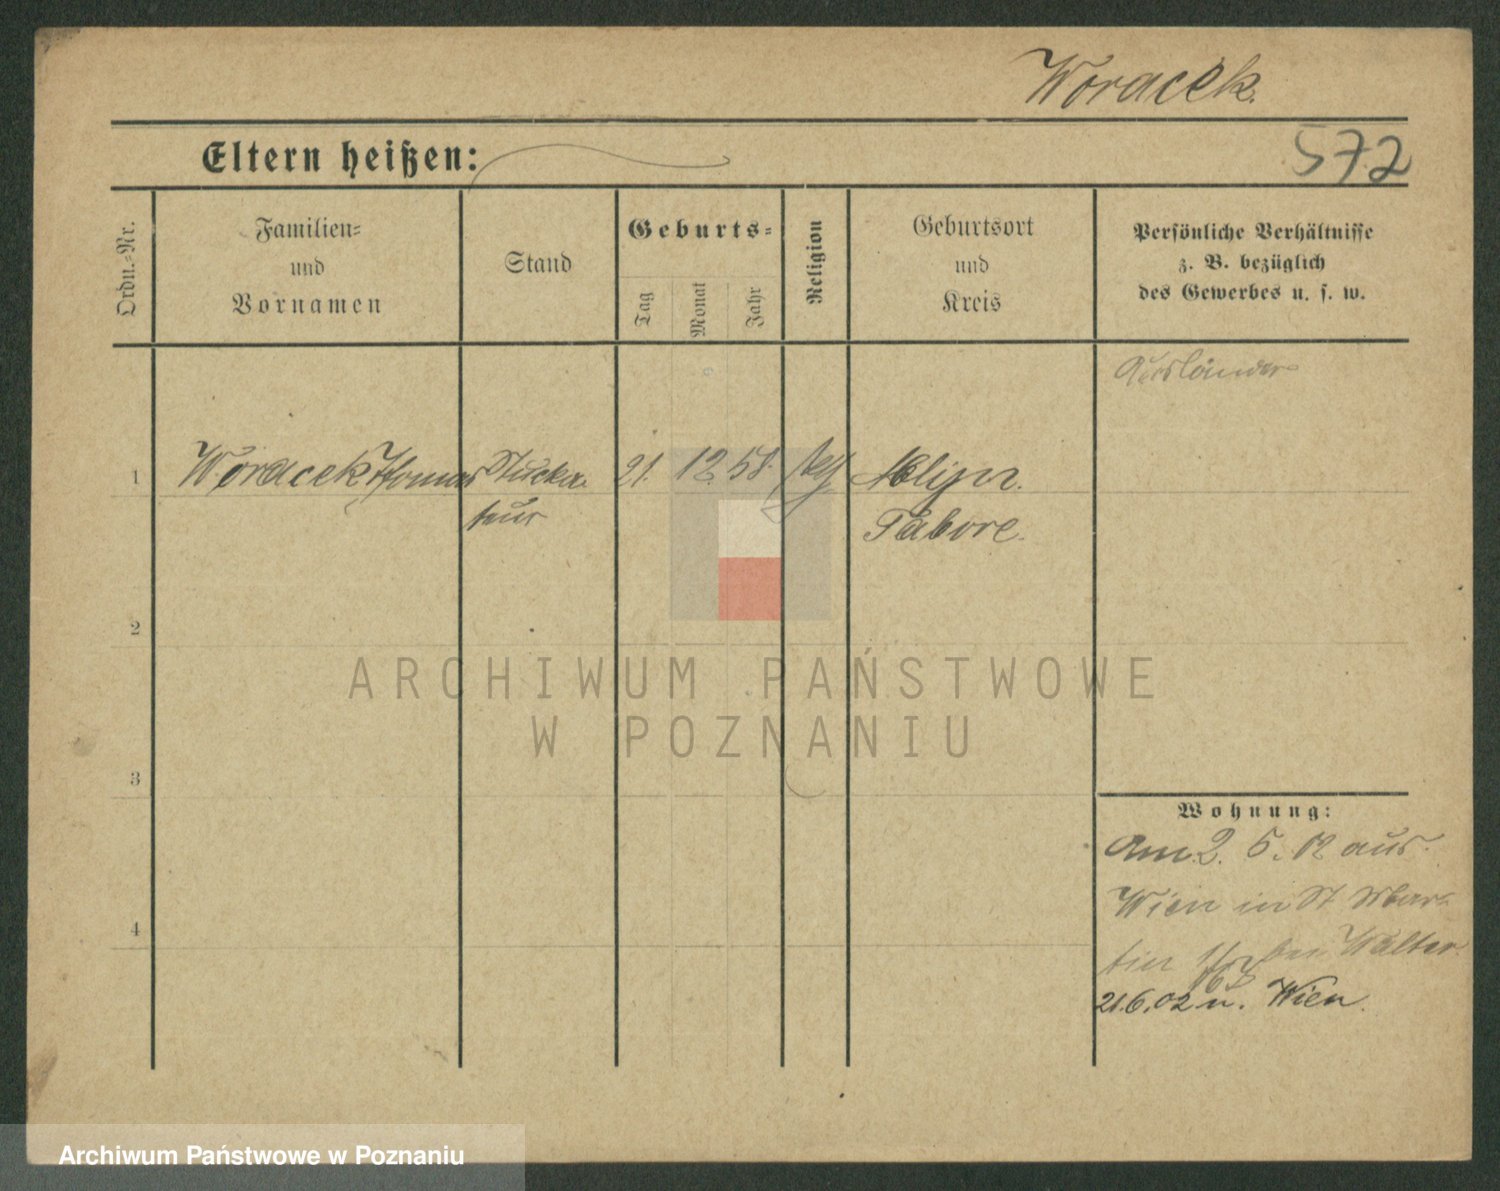 Woracek.
572
Eltern heißen:
Ordn.-Nr.
Familien-
und
Vornamen
Stand
Geburts-
Tag
Monat
Jahr
Religion
Geburtsort
und
Kreis
Persönliche Verhältnisse
z. B. bezüglich
des Gewerbes u. s. w.
Ausländer
1 Woracek Thomas Stucka- 21. 12. 58.
teur
Tabore.
2
3
4
Wohnung:
Am 2. 5. 02 aus
Wien in St Mar-
tin bei Walter.
21.6.02 n. Wien.
ARCHIWUM PAŃSTWOWE
W POZNANIU
Archiwum Państwowe w Poznaniu